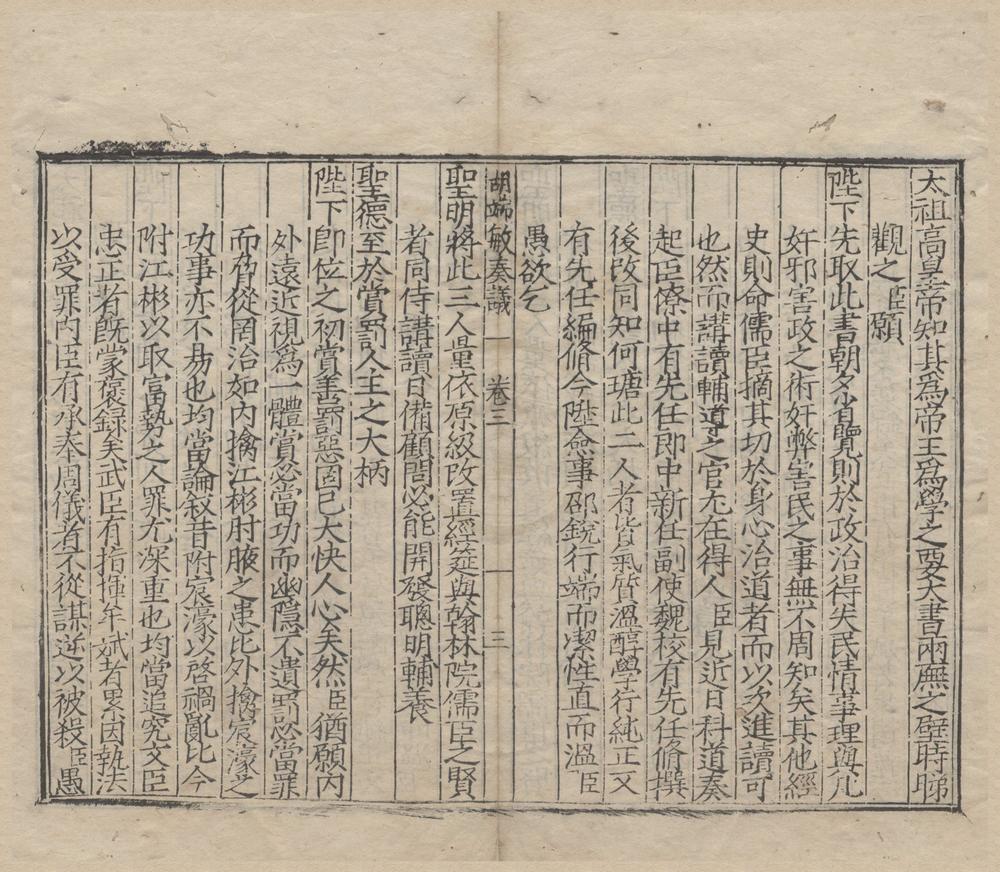 太祖高皇帝知其為帝王為學之要大書兩廡之壁時睇
觀之臣願
陛下先取此書朝夕省覽則於政治得失民情事理與凡
奸邪害政之術奸弊害民之事無不周知矣其他經
史則命儒臣摘其切於身心治道者而以次進讀可
也然而講讀輔導之官尤在得人臣見近日科道奏
起臣僚中有先任郎中新任副使魏校有先任脩撰
後改同知何瑭此二人者皆氣質溫醇學行純正又
有先任編脩今陞僉事邵銳行端而潔性直而溫臣
愚欲乞
胡端敏奏議 卷三 三
聖明將此三人量依原級改置經筵與翰林院儒臣之賢
者同侍講讀日備顧問必能開發聰明輔養
聖德至於賞罰人主之大柄
陛下即位之初賞善罰惡固已大快人心矣然臣猶願內
外遠近視為一體賞必當功而幽隱不遺罰必當罪
而脅從罔治如內擒江彬肘腋之患比外擒宸濠之
功事亦不易也均當論叙昔附宸濠以啓禍亂比今
附江彬以取富勢之人罪尤深重也均當追究文臣
忠正者既蒙褒録矣武臣有指揮牟斌者累因執法
以受罪內臣有承奉周儀者不從謀逆以被殺臣愚